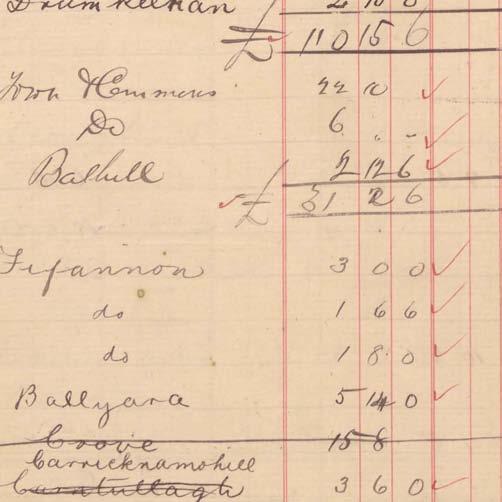 Drumkeeran 2 10 0
£ 110 15 6
Town & Commons 22 10
Do 6 " "
Balhill 2 12 6
£ 31 2 6
Fifannon 3 0 0
do 1 6 6
do 1 8 0
Ballyara 5 14 0
Crove 15 8
Carricknamohill
Carntullagh 3 6 0